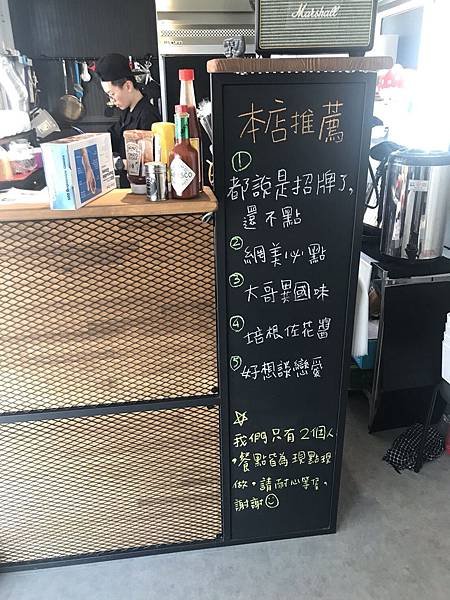 Marshall
本店推薦
① 都說是招牌了,
還不點
② 網美必點
③ 大哥異國味
④ 培根佐花醬
⑤ 好想談戀愛
☆
我們只有2個人
,餐點皆為現點現
做,請耐心等候,
謝謝☺
TABASCO